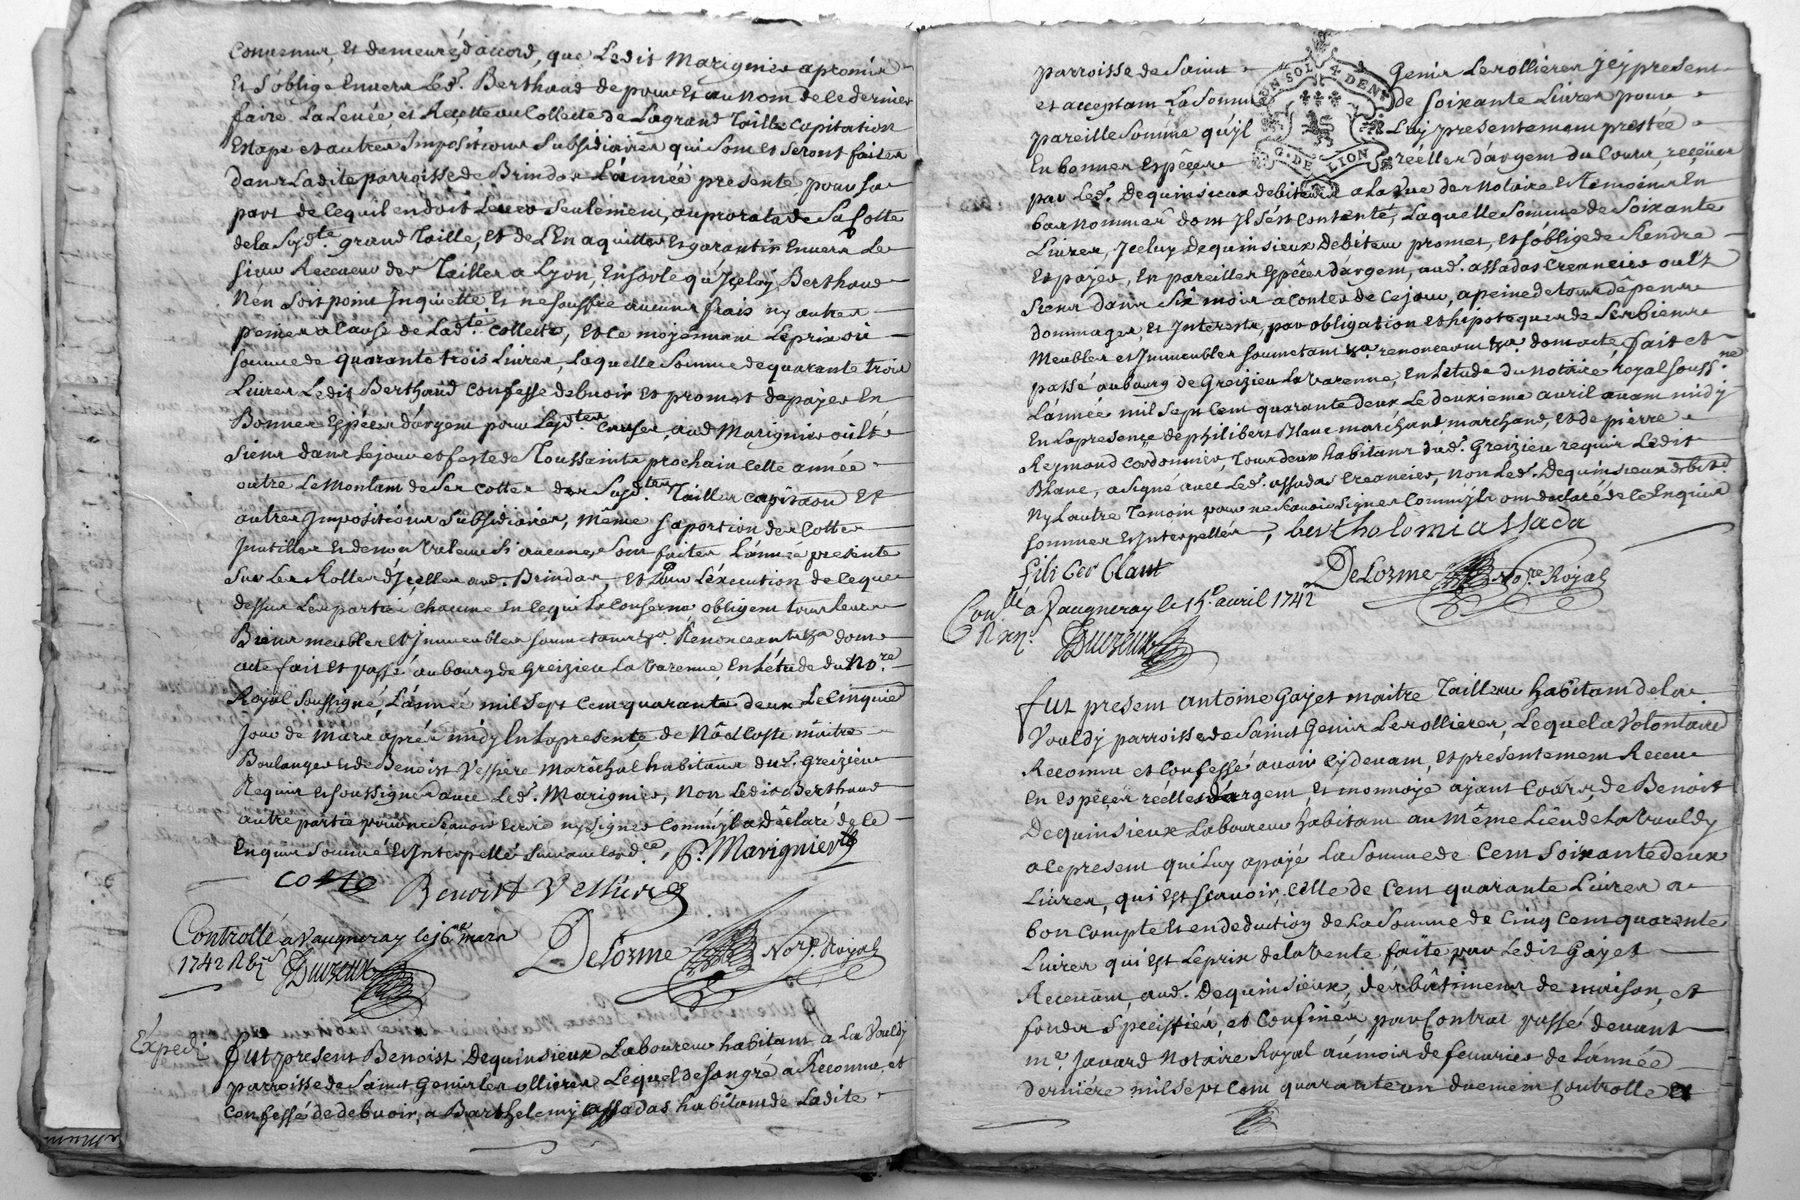 Convenus, et demeurés d'accord, que Ledit Marignier a promis
Et s'oblige Envers Led. Berthaud de pour et au nom de ce dernier
faire La Levée, et Recette ou Collecte de La grand Taille Capitation
Etape et autres Impositions Subsidiaires qui sont et seront faites
dans Ladite parroisse de Brindas L'année presente pour sa
part de ce qu'il en doit Lever seulement, au prorata de sa Cotte
de la Sudte. grand Taille, et de L'En aquitter et garantir Envers Le
sieur Receveur des Tailles a Lyon, Ensorte qu'Iceluy Berthaud
N'en soit point Inquietté Et ne souffre aucuns frais ny autres
peines a cause de Ladte. Collecte, Et ce moyennant Le prix et
somme de quarante trois Livres, Laquelle Somme de quarante trois
Livres Ledit Berthaud Confesse debvoir et promet de payer En
Bonnes Espéces d'argent pour Lesdtes Causes, aud Marignier ou Es
siens dans Le jour et feste de Toussaints prochain Cette année
outre Le Montant de Ses Cottes des Susd. Tailles Capitaon Et
autres Impositions Subsidiaires, même sa portion des Cottes
Inutilles et de non Valeurs si aucunes sont faites L'année presente
Sur Les Rolles d'Icelles aud. Brindas, Et Pour L'éxecution de ce que
dessus Les parties chacune En ce qui La Conserne obligent tous leurs
Biens meubles et Immeubles soumettant &a. Renonceant &a dont
acte fait et Passé au bourg de Greizieu La Varenne En L'étude du Nore.
Royal Soussigné, L'année mil sept Cent quarante deux Le Cinquie
Jour de Mars aprés midy En La presente de Noël Coste maitre
Boulanger et de Benoist Vessiére Maréchal habitans dud. Greizieu
Requis et soussignés avec Led. Marignier, Non Ledit Berthaud
autre partie pour ne scavoir Ecrire ny signer Comm'yl a déclaré de ce
Enquis Sommé et Interpellé Suivant Lord.ce, P. Marignier
coste Benoist Vessiere
Controllé a Vaugneray le 16e mars
1742 Duvreux
Delorme Nore. Royal
Expedi
fut present Benoist Dequinsieux Laboureur habitant a La Vouldy
parroisse de Saint Genis Les ollieres Lequel de son gré a Reconnu, et
Confessé de debvoir, a Barthelemy assadas habitant de Ladite
GEN. DE LION SOL. 4. DEN
parroisse de Saint Genis Les ollieres Icy present
et acceptant La Somme de soixante Livres pour
pareille Somme qu'yl Luy presentement prestée
En bonnes Espéces réelles d'argent du Cours, reçeües
par Led. Dequinsieux debiteur a La Vue des Notaire Et Temoins En
bas nommés dont Il s'est Contenté, Laquelle Somme de Soixante
Livres, Iceluy Dequinsieux Debiteur promet, et s'oblige de Rendre
Et payer, En pareilles Espéces d'argent, aud. assadas Creancier ou Es
Siens dans Six mois a Conter de Ce jour, a peine de tous dépens
dommages, et Interests, par obligation et hipoteques de Ses biens
Meubles et Immeubles soumetant &a. renonceant &a. dont acte, fait et
passé au bourg de Greizieu La Varenne, En L'étude du Notaire royal souss.né
L'année mil sept Cent quarante deux Le deuxieme avril avant midy
En La presence de philibert Blanc marchand marchand, et de pierre
Reymond Cordonnier, Tous deux habitans dud. Greizieu requis Ledit
Blanc, a signé avec Led. assadas Creancier, Non Led. Dequinsieux debit.
Ny L'autre Temoin pour ne scavoir signer Comm'yls ont declaré de ce Enquis
sommés et Interpellés, bertholomi assada
fili ber Clant
Delorme Nore. Royal
Con.llé a Vaugneray le 15e avril 1742
Duvreux
fut present antoine Gayet maitre Tailleur habitant de La
Vouldy parroisse de Saint Genis Les ollieres, Lequel a Volontaire
Reconnu et Confessé avoir Cydevant, et presentement Receu
En Espéces réelles d'argent, Et monnoye ayant Cours, de Benoit
Dequinsieux Laboureur habitant au Même Lieu de La Vouldy
a ce present qui Luy a payé La Somme de Cent Soixante deux
Livres, qui Est Scavoir, Celle de Cent quarante Livres a
bon Compte et en deduction de La Somme de Cinq Cent quarente
Livres qui Est Le prix de La Vente faite par Ledit Gayet
Recevant, aud. Dequinsieux, des bâtimens de maison, et
fonds Specifiés, et Confinés par Contrat passé devant
me. Javard Notaire Royal au mois de fevrier de L'année
derniére mil sept Cent quarante un duement Controllé Et